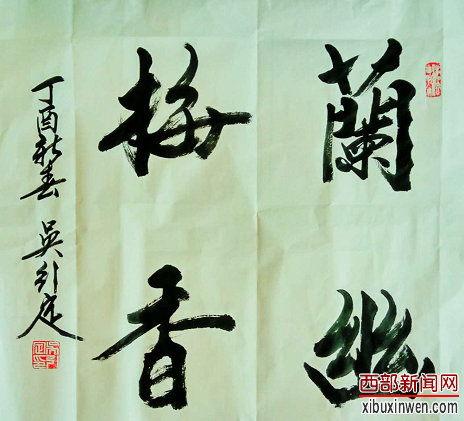 蘭幽
梅香
丁酉新春 吳引定
西部新闻网
xibuxinwen.com